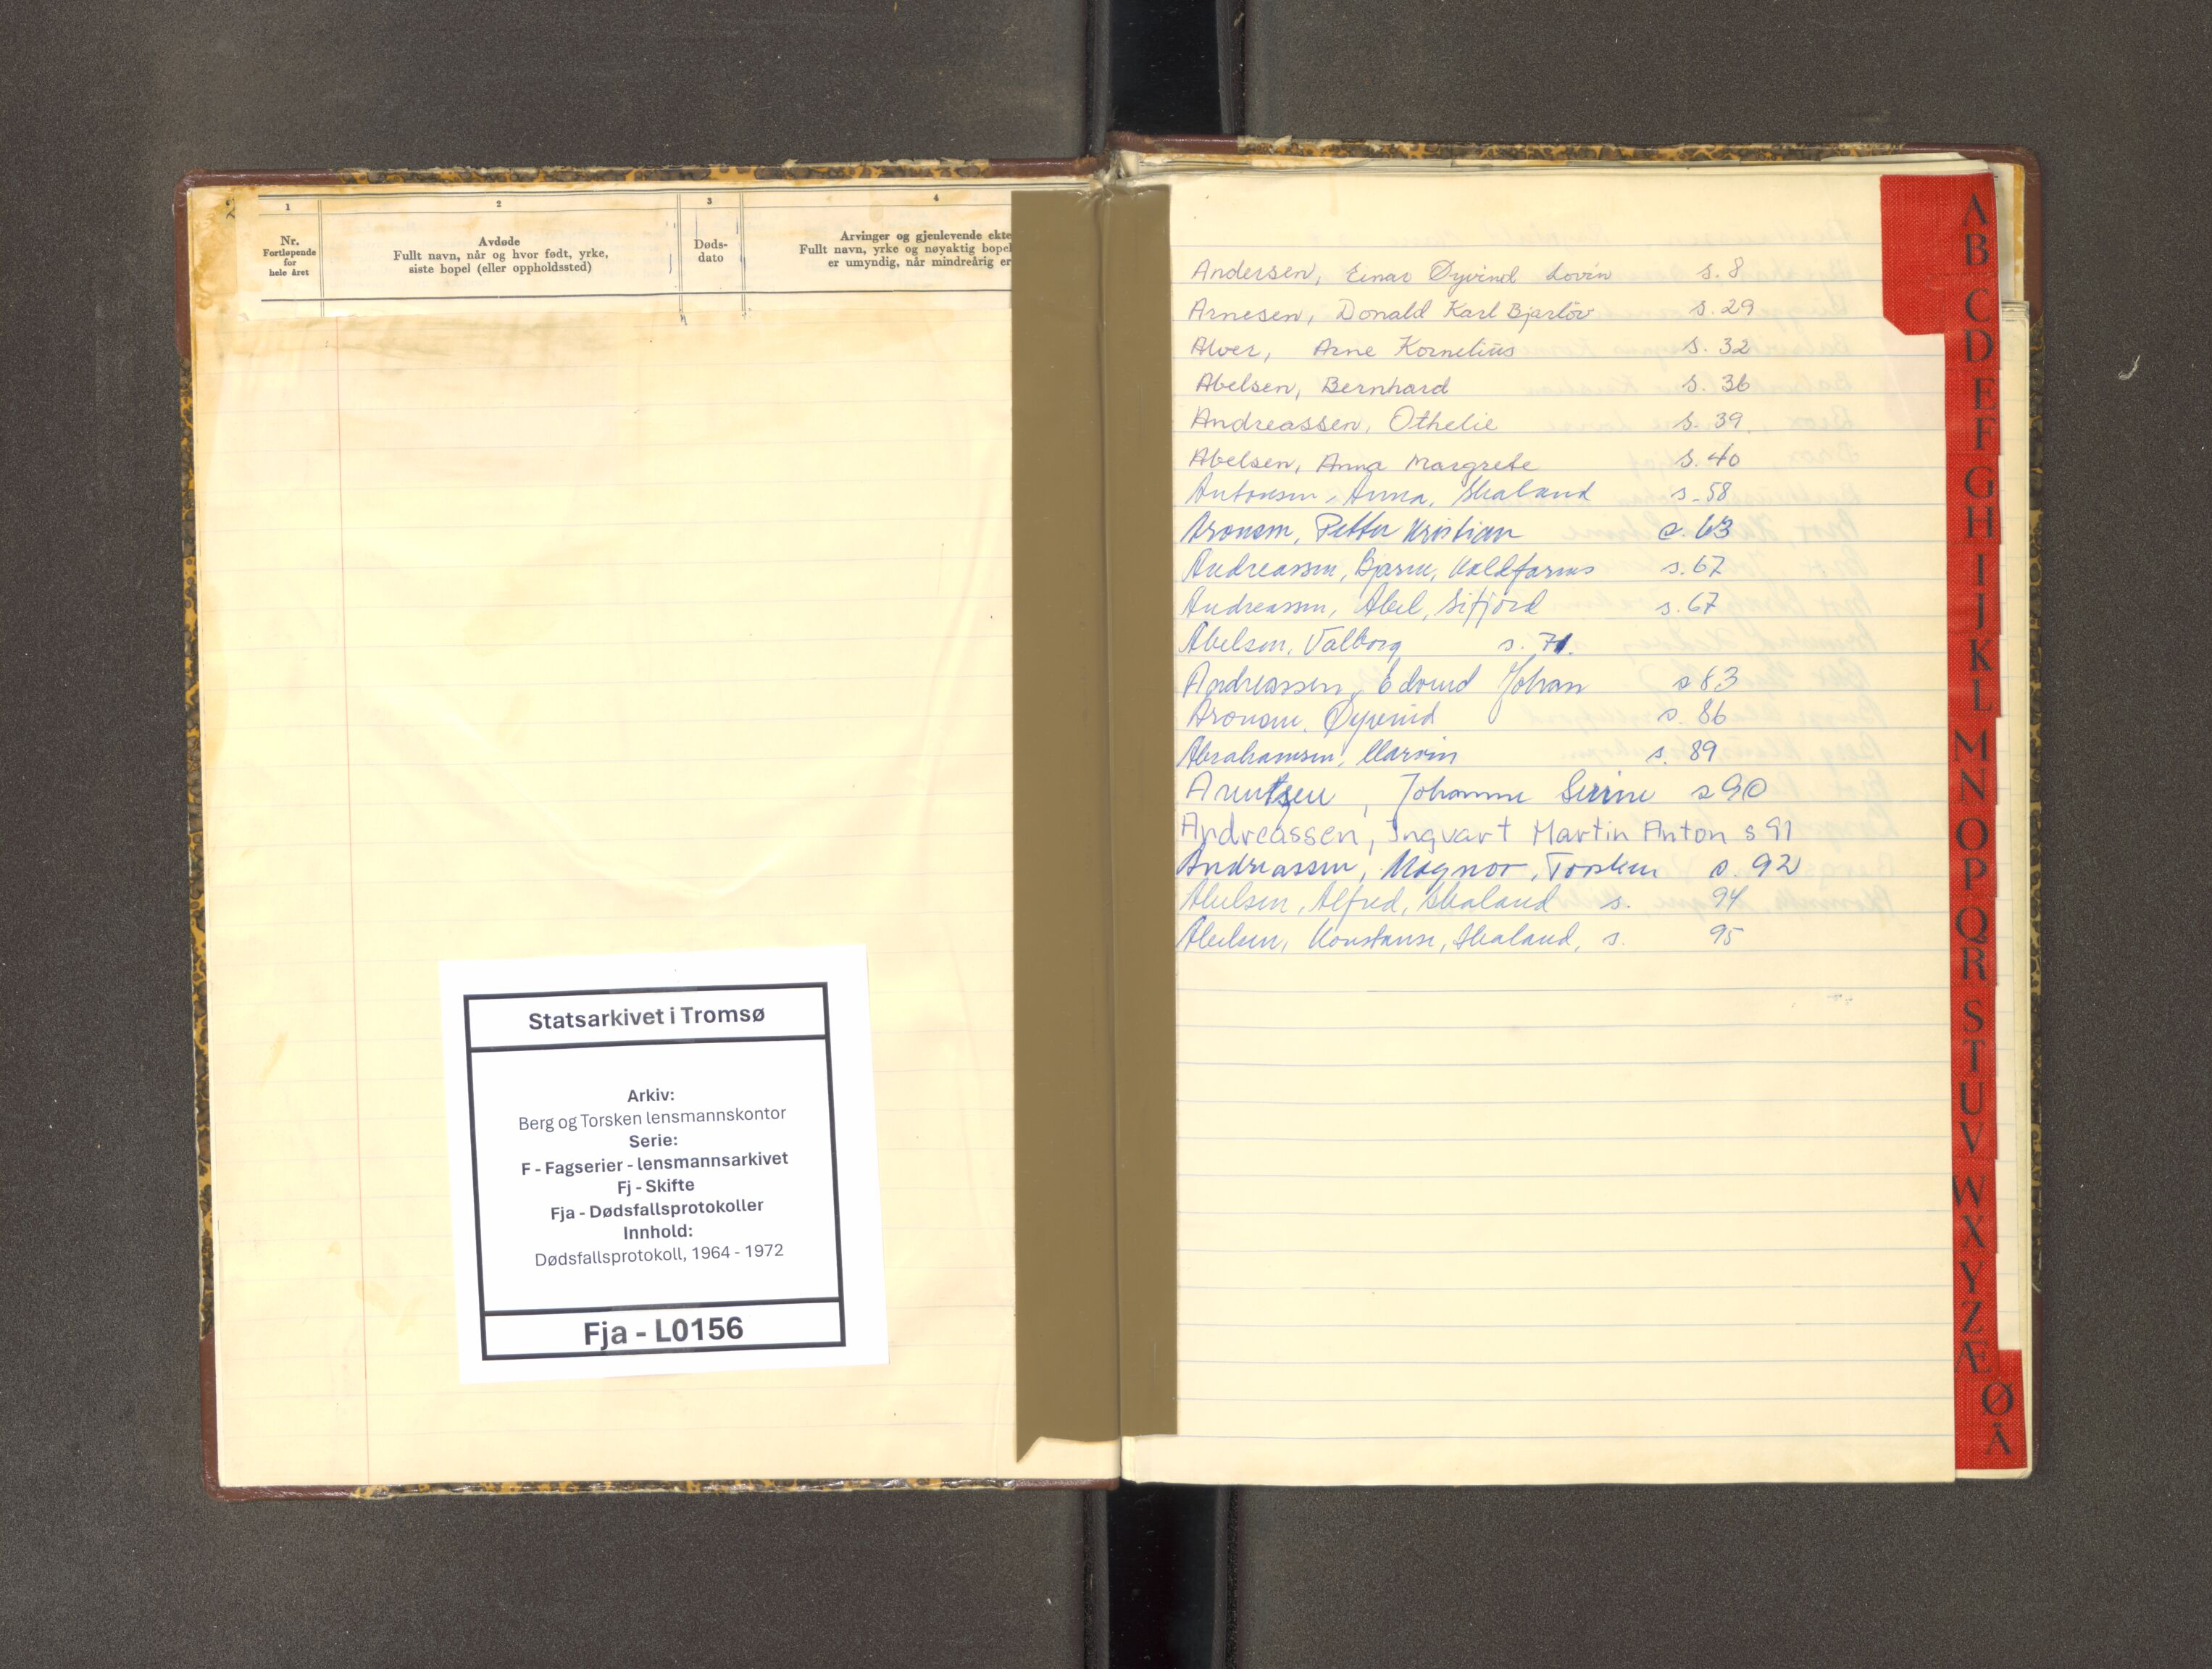 1 2 3 4
Nr.
Fortløpende
for
hele året
Avdøde
Fullt navn, når og hvor født, yrke,
siste bopel (eller oppholdssted)
Døds-
dato
Arvinger og gjenlevende ekte
Fullt navn, yrke og nøyaktig bopel
er umyndig, når mindreårig er
Statsarkivet i Tromsø
Arkiv:
Berg og Torsken lensmannskontor
Serie:
F - Fagserier - lensmannsarkivet
Fj - Skifte
Fja - Dødsfallsprotokoller
Innhold:
Dødsfallsprotokoll, 1964 - 1972
Fja - L0156
Andersen, Einar Øyvind Lovin s. 8
Arnesen, Donald Karl Bjarlöv s. 29
Alver, Arne Kornelius s. 32
Abelsen, Bernhard s. 36
Andreassen, Othelie s. 39
Abelsen, Anna Margrete s. 40
Antonsen, Anna, Skaland s. 58
Aronsen, Petter Kristian s. 63
Andreassen, Bjarne, Kaldfarnes s. 67
Andreassen, Abel, Sifjord s. 67
Abelsen, Valborg s. 71.
Andreassen, Edvund Johan s 83
Aronsen, Øyvind s. 86
Abrahamsen, Marvin s. 89
Arntzen, Johanne s 90
Andreassen, Ingvart Martin Anton s 91
Andreassen, Magnor, Torsken s. 92
Abelsen, Alfred, Skaland s. 94
Abelsen, Konstanse, Skaland, s. 95
A
B
C
D
E
F
G
H
I
J
K
L
M
N
O
P
Q
R
S
T
U
V
W
X
Y
Z
Æ
Ø
Å